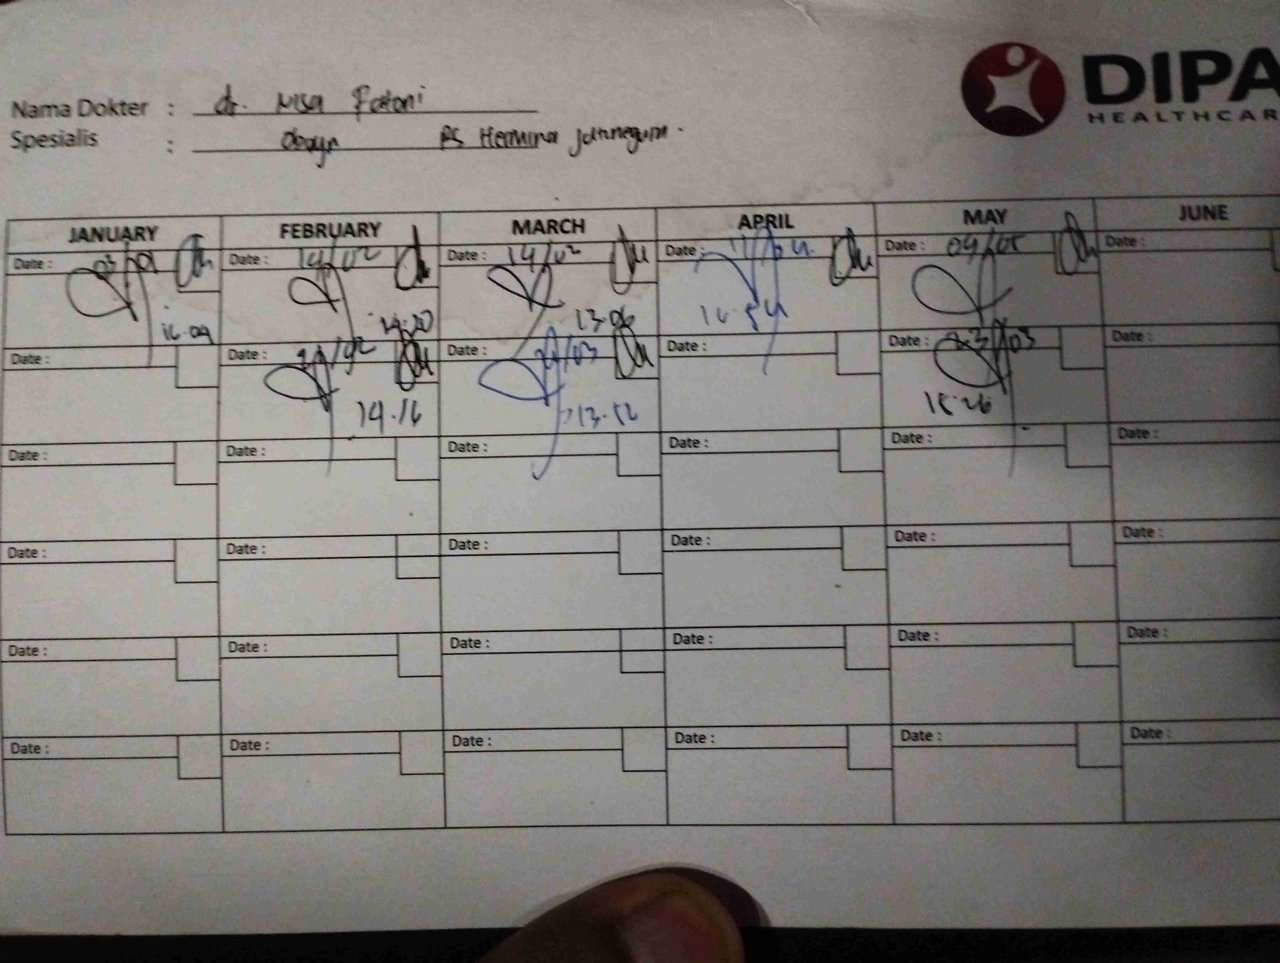 DIPA
HEALTHCAR
Nama Dokter : dr. Nisa Fatoni
Spesialis : Obgyn RS Hermina
JANUARY FEBRUARY MARCH APRIL MAY JUNE
Date : 03/01 Date : 14/02 Date : 14/02 Date : Date : 09/05 Date :
16.09 14.20 13.06 14.54
Date : Date : Date : 24/03 Date : Date : 23/03 Date :
14.16 13.52 15.26
Date : Date : Date : Date : Date : Date :
Date : Date : Date : Date : Date : Date :
Date : Date : Date : Date : Date : Date :
Date : Date : Date : Date : Date : Date :